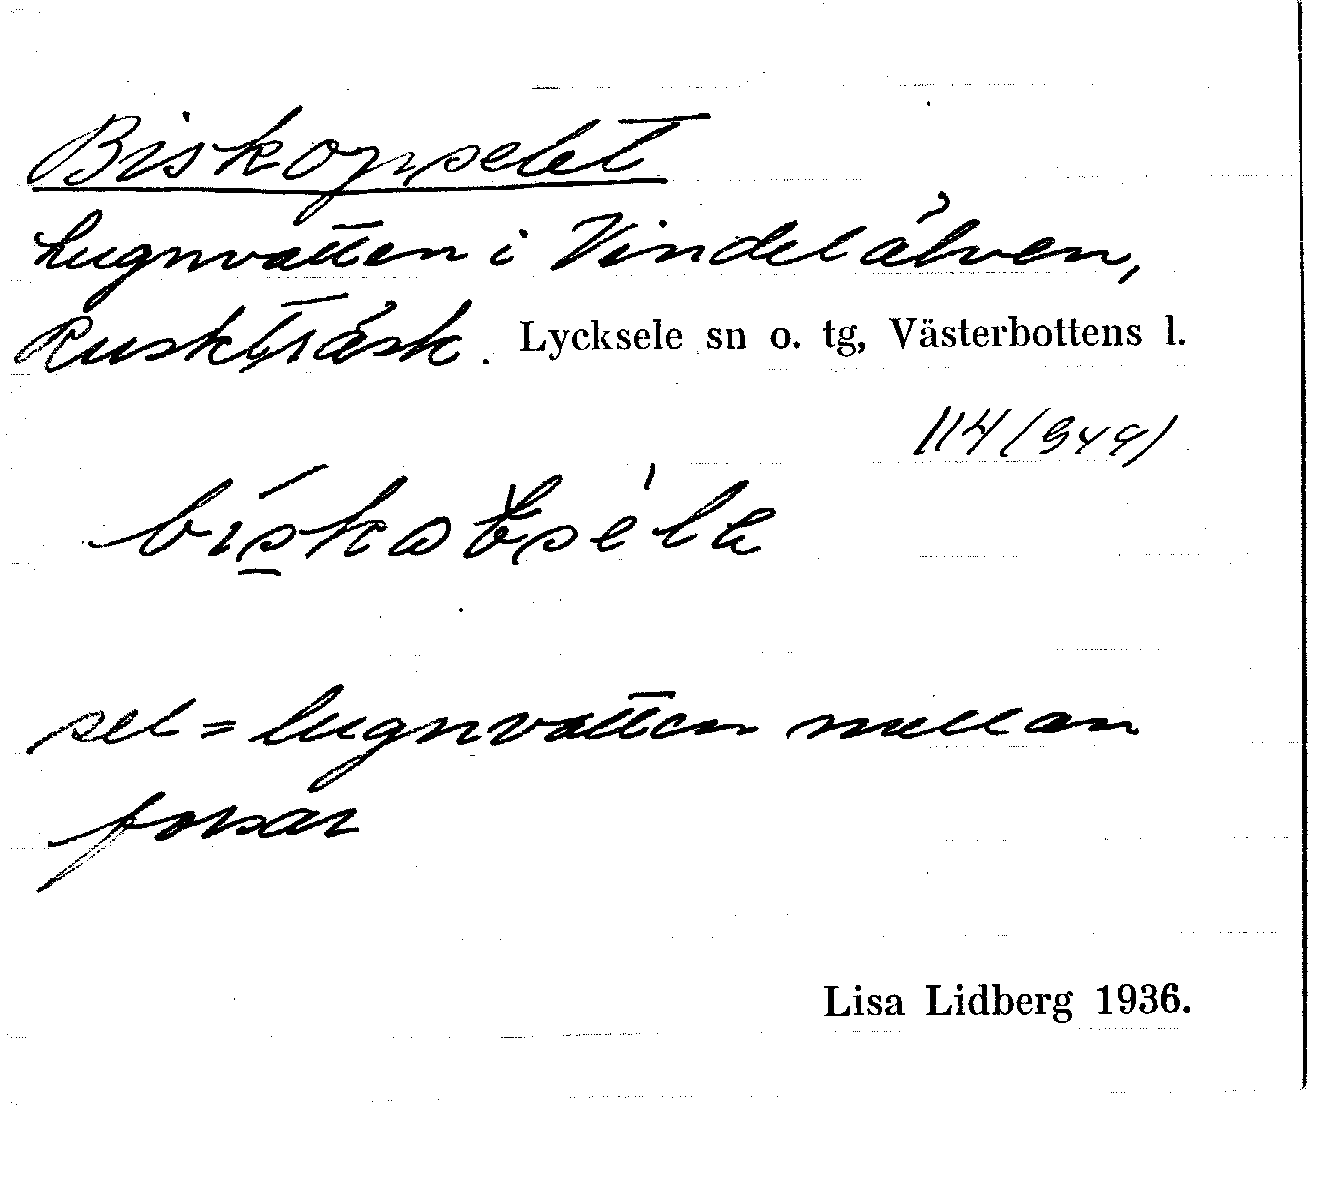 Biskopselet
Lugnvatten i Vindelälven,
Rusksträsk. Lycksele sn o. tg, Västerbottens l.
sel = lugnvatten mellan
forsar
Lisa Lidberg 1936.